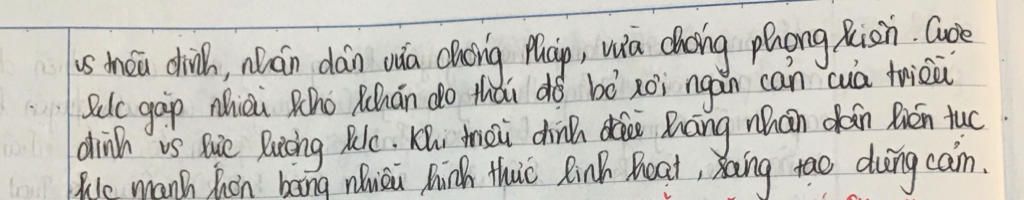 vs triều đình, nhân dân vừa chống Pháp, vừa chống phong kiến. Cuộc
k/c gặp nhiều khó khăn do thái độ bỏ rơi ngăn cản của triều
đình vs lực lượng k/c. Khi triều đình đầu hàng nhân dân liên tục
k/c mạnh hơn bằng nhiều hình thức linh hoạt, sáng tạo dũng cảm.